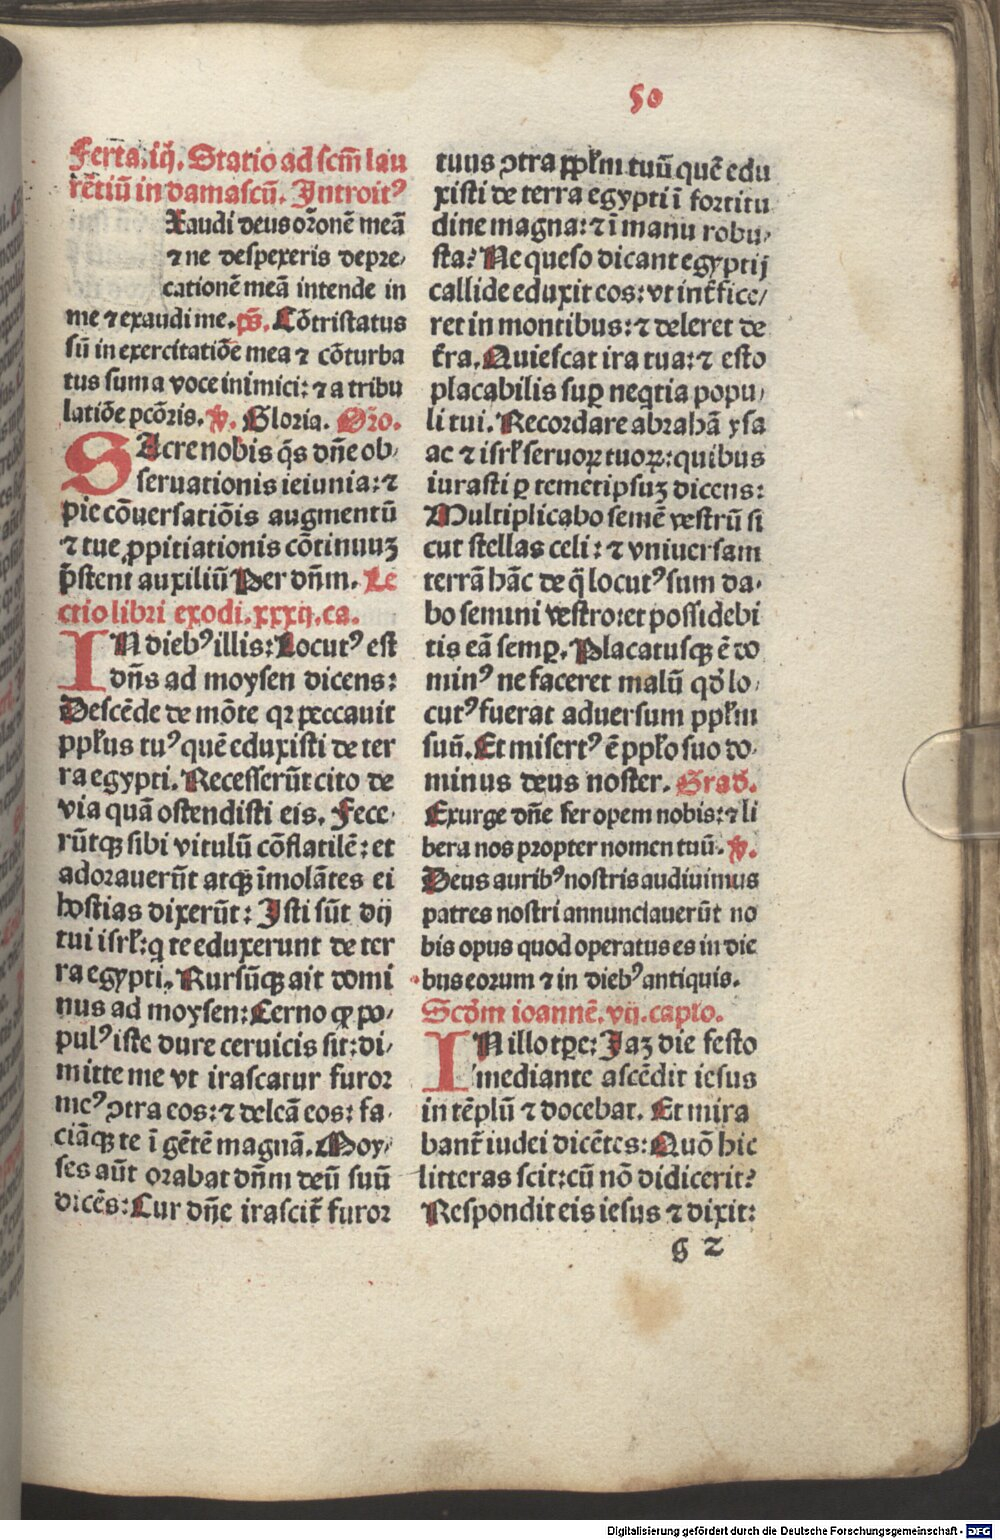 50
Feria.iij. Statio ad scm̄ lau
rētiū in damascū. Introit⁹
Xaudi deus or̄onē meā
⁊ ne despexeris depre⸗
cationē meā intende in
me ⁊ exaudi me. ps̄. Cōtristatus
sū in exercitatiōe mea ⁊ cōturba
tus sum a voce inimici: ⁊ a tribu
latiōe pctōris. ℣. Gloria. Or̄o.
SAcre nobis q̄s dn̄e ob⸗
seruationis ieiunia: ⁊
pie cōuersatiōis augmentū
⁊ tue ꝓpitiationis cōtinuuꝫ
p̄stent auxiliū Per dn̄m. Le
ctio libri exodi. xxxij. ca.
IN dieb⁹ illis: Locut⁹ est
dn̄s ad moysen dicens:
Descēde de mōte qꝛ peccauit
ppl̄us tu⁹ quē eduxisti de ter
ra egypti. Recesserūt cito de
via quā ostendisti eis. Fece⸗
rūtqꝫ sibi vitulū cōflatilē: et
adorauerūt atqꝫ īmolātes ei
hostias dixerūt: Isti sūt dij
tui isrl̄: q te eduxerunt de ter
ra egypti. Rursūqꝫ ait domi
nus ad moysen: Cerno ꝙ po⸗
pul⁹ iste dure ceruicis sit: di⸗
mitte me vt irascatur furor
me⁹ ꝯtra eos: ⁊ deleā eos: fa⸗
ciāqꝫ te ī gētē magnā. Moy⸗
ses aūt orabat dn̄m deū suū
dicēs: Cur dn̄e irascit̄ furor
tuus ꝯtra ppl̄m tuū quē edu
xisti de terra egypti ī fortitu
dine magna: ⁊ ī manu robu⸗
sta? Ne queso dicant egyptij
callide eduxit eos: vt int̄fice⸗
ret in montibus: ⁊ deleret de
t̄ra. Quiescat ira tua: ⁊ esto
placabilis suꝑ neqtia popu⸗
li tui. Recordare abrahā ysa
ac ⁊ isrl̄ seruoꝝ tuoꝝ: quibus
iurasti ꝑ temetipsuꝫ dicens:
Multiplicabo semē vestrū si
cut stellas celi: ⁊ vniuersam
terrā hāc de q̄ locut⁹ sum da⸗
bo semini vestro: et possidebi
tis eā semꝑ. Placatusqꝫ ē do
min⁹ ne faceret malū qd̄ lo⸗
cut⁹ fuerat aduersum ppl̄m
suū. Et misert⁹ ē ppl̄o suo do⸗
minus deus noster. Grad̄.
Exurge dn̄e fer opem nobis: ⁊ li
bera nos propter nomen tuū. ℣.
Deus aurib⁹ nostris audiuimus
patres nostri annunciauerūt no
bis opus quod operatus es in die
bus eorum ⁊ in dieb⁹ antiquis.
Scd̄m ioannē. vij. caplo.
IN illo tꝑe: Jaꝫ die festo
mediante ascēdit iesus
in tēplū ⁊ docebat. Et mira
bant̄ iudei dicētes: Quō hic
litteras scit: cū nō didicerit?
Respondit eis iesus ⁊ dixit:
g 2
Digitalisierung gefördert durch die Deutsche Forschungsgemeinschaft - DFG